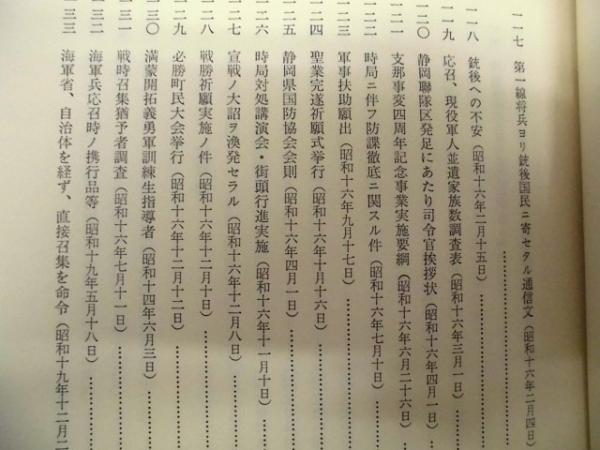 一一七 第一線将兵ヨリ銃後国民ニ寄セタル通信文（昭和十六年二月四日）
一一八 銃後への不安（昭和十六年二月十五日）
一一九 応召、現役軍人並遺家族数調査表（昭和十六年三月一日）
一二〇 静岡聯隊区発足にあたり司令官挨拶状（昭和十六年四月一日）
一二一 支那事変四周年記念事業実施要綱（昭和十六年六月二十六日）
一二二 時局ニ伴フ防諜徹底ニ関スル件（昭和十六年七月十日）
一二三 軍事扶助願出（昭和十六年九月十七日）
一二四 聖業完遂祈願式挙行（昭和十六年十月十六日）
一二五 静岡県国防協会会則（昭和十六年四月一日）
一二六 時局対処講演会・街頭行進実施（昭和十六年十一月十日）
一二七 宣戦ノ大詔ヲ渙発セラル（昭和十六年十二月八日）
一二八 戦勝祈願実施ノ件（昭和十六年十二月八日）
一二九 必勝町民大会挙行（昭和十六年十二月十二日）
一三〇 満蒙開拓義勇軍訓練生指導者（昭和十四年六月三日）
一三一 戦時召集猶予者調査（昭和十六年七月十一日）
一三二 海軍兵応召時ノ携行品等（昭和十九年五月十八日）
一三三 海軍省、自治体を経ず、直接召集を命令（昭和十九年十二月二